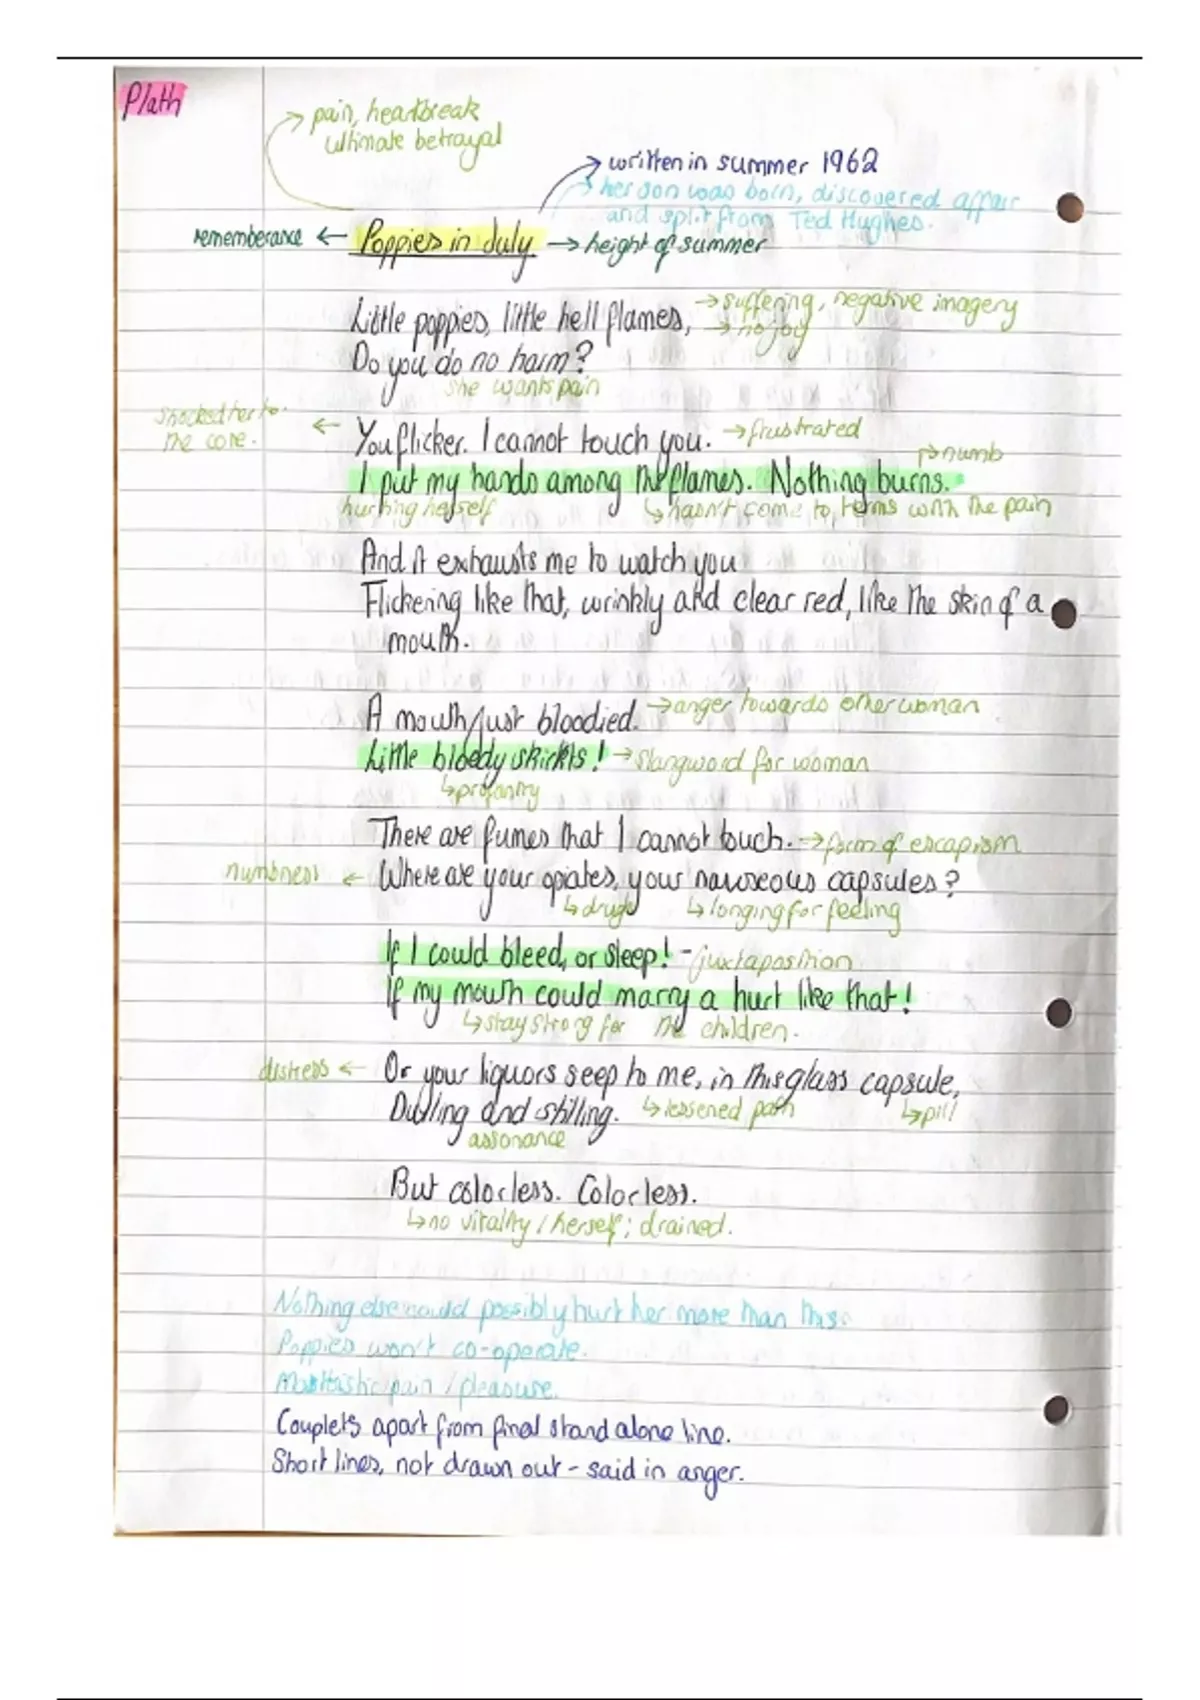 Plath
pain, heartbreak
ultimate betrayal
written in summer 1962
her son was born, discovered affair
and split from Ted Hughes.
rememberance ← Poppies in July → height of summer
Little poppies, little hell flames, → suffering, negative imagery
→ no joy
Do you do no harm?
she wants pain
shocked her to
the core. ← You flicker. I cannot touch you. → frustrated
numb
I put my hands among the flames. Nothing burns.
hurting herself ↳ hasn't come to terms with the pain
And it exhausts me to watch you
Flickering like that, wrinkly and clear red, like the skin of a
mouth.
A mouth just bloodied. → anger towards other woman
Little bloody skirts! → slangword for woman
↳ profanity
There are fumes that I cannot touch. → form of escapism
numbness ← Where are your opiates, your nauseous capsules?
↳ drugs ↳ longing for feeling
If I could bleed, or sleep! - juxtaposition
If my mouth could marry a hurt like that!
↳ stay strong for the children.
distress ← Or your liquors seep to me, in this glass capsule,
Dulling and stilling. ↳ lessened pain ↳ pill
assonance
But colorless. Colorless.
↳ no vitality / herself; drained.
Nothing else could possibly hurt her more than this.
Poppies won't co-operate.
pain / pleasure.
Couplets apart from final stand alone line.
Short lines, not drawn out - said in anger.